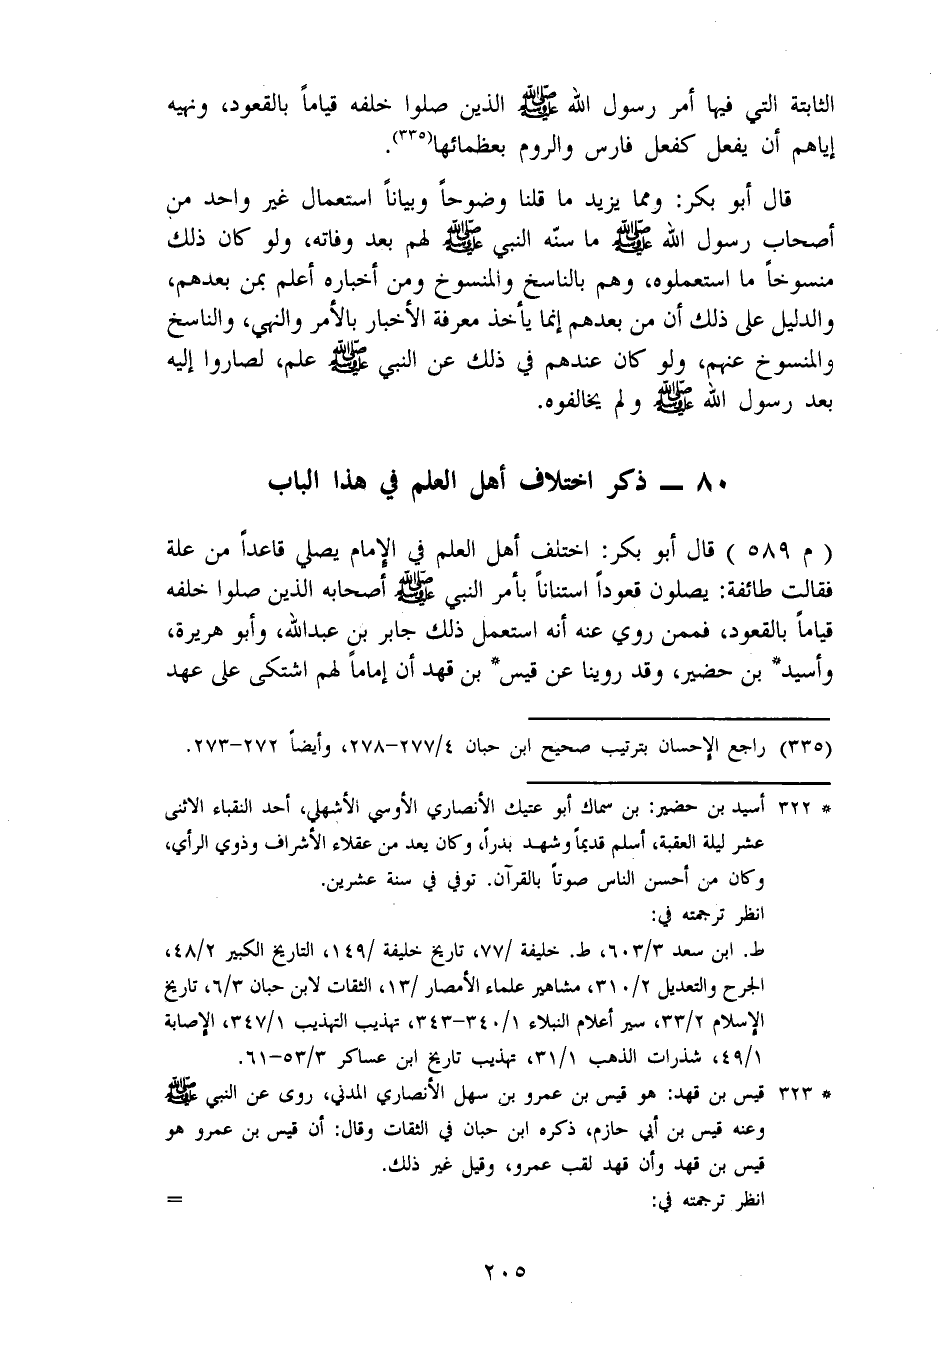 الثابتة التي فيها أمر رسول الله ﷺ الذين صلوا خلفه قياماً بالقعود، ونهيه
إياهم أن يفعل كفعل فارس والروم بعظمائها(٣٣٥).
قال أبو بكر: ومما يزيد ما قلنا وضوحاً وبياناً استعمال غير واحد من
أصحاب رسول الله ﷺ ما سنّه النبي ﷺ لهم بعد وفاته، ولو كان ذلك
منسوخاً ما استعملوه، وهم بالناسخ والمنسوخ ومن أخباره أعلم بمن بعدهم،
والدليل على ذلك أن من بعدهم إنما يأخذ معرفة الأخبار بالأمر والنهي، والناسخ
والمنسوخ عنهم، ولو كان عندهم في ذلك عن النبي ﷺ علم، لصاروا إليه
بعد رسول الله ﷺ ولم يخالفوه.
٨٠ ــ ذكر اختلاف أهل العلم في هذا الباب
( م ٥٨٩ ) قال أبو بكر: اختلف أهل العلم في الإمام يصلي قاعداً من علة
فقالت طائفة: يصلون قعوداً استناناً بأمر النبي ﷺ أصحابه الذين صلوا خلفه
قياماً بالقعود، فممن روي عنه أنه استعمل ذلك جابر بن عبدالله، وأبو هريرة،
وأسيد* بن حضير، وقد روينا عن قيس* بن قهد أن إماماً لهم اشتكى على عهد
(٣٣٥) راجع الإحسان بترتيب صحيح ابن حبان ٤/٢٧٧–٢٧٨، وأيضاً ٢٧٢–٢٧٣.
* ٣٢٢ أسيد بن حضير: بن سماك أبو عتيك الأنصاري الأوسي الأشهلي، أحد النقباء الاثنى
عشر ليلة العقبة، أسلم قديماً وشهد بدراً، وكان يعد من عقلاء الأشراف وذوي الرأي،
وكان من أحسن الناس صوتاً بالقرآن. توفي في سنة عشرين.
انظر ترجمته في:
ط. ابن سعد ٦٠٣/٣، ط. خليفة /٧٧، تاريخ خليفة /١٤٩، التاريخ الكبير ٤٨/٢،
الجرح والتعديل ٣١٠/٢، مشاهير علماء الأمصار /١٣، الثقات لابن حبان ٦/٣، تاريخ
الإسلام ٣٣/٢، سير أعلام النبلاء ٣٤٠/١–٣٤٣، تهذيب التهذيب ٣٤٧/١، الإصابة
٤٩/١، شذرات الذهب ٣١/١، تهذيب تاريخ ابن عساكر ٥٣/٣–٦١.
* ٣٢٣ قيس بن قهد: هو قيس بن عمرو بن سهل الأنصاري المدني، روى عن النبي ﷺ
وعنه قيس بن أبي حازم، ذكره ابن حبان في الثقات وقال: أن قيس بن عمرو هو
قيس بن قهد وأن قهد لقب عمرو، وقيل غير ذلك.
انظر ترجمته في: =
٢٠٥